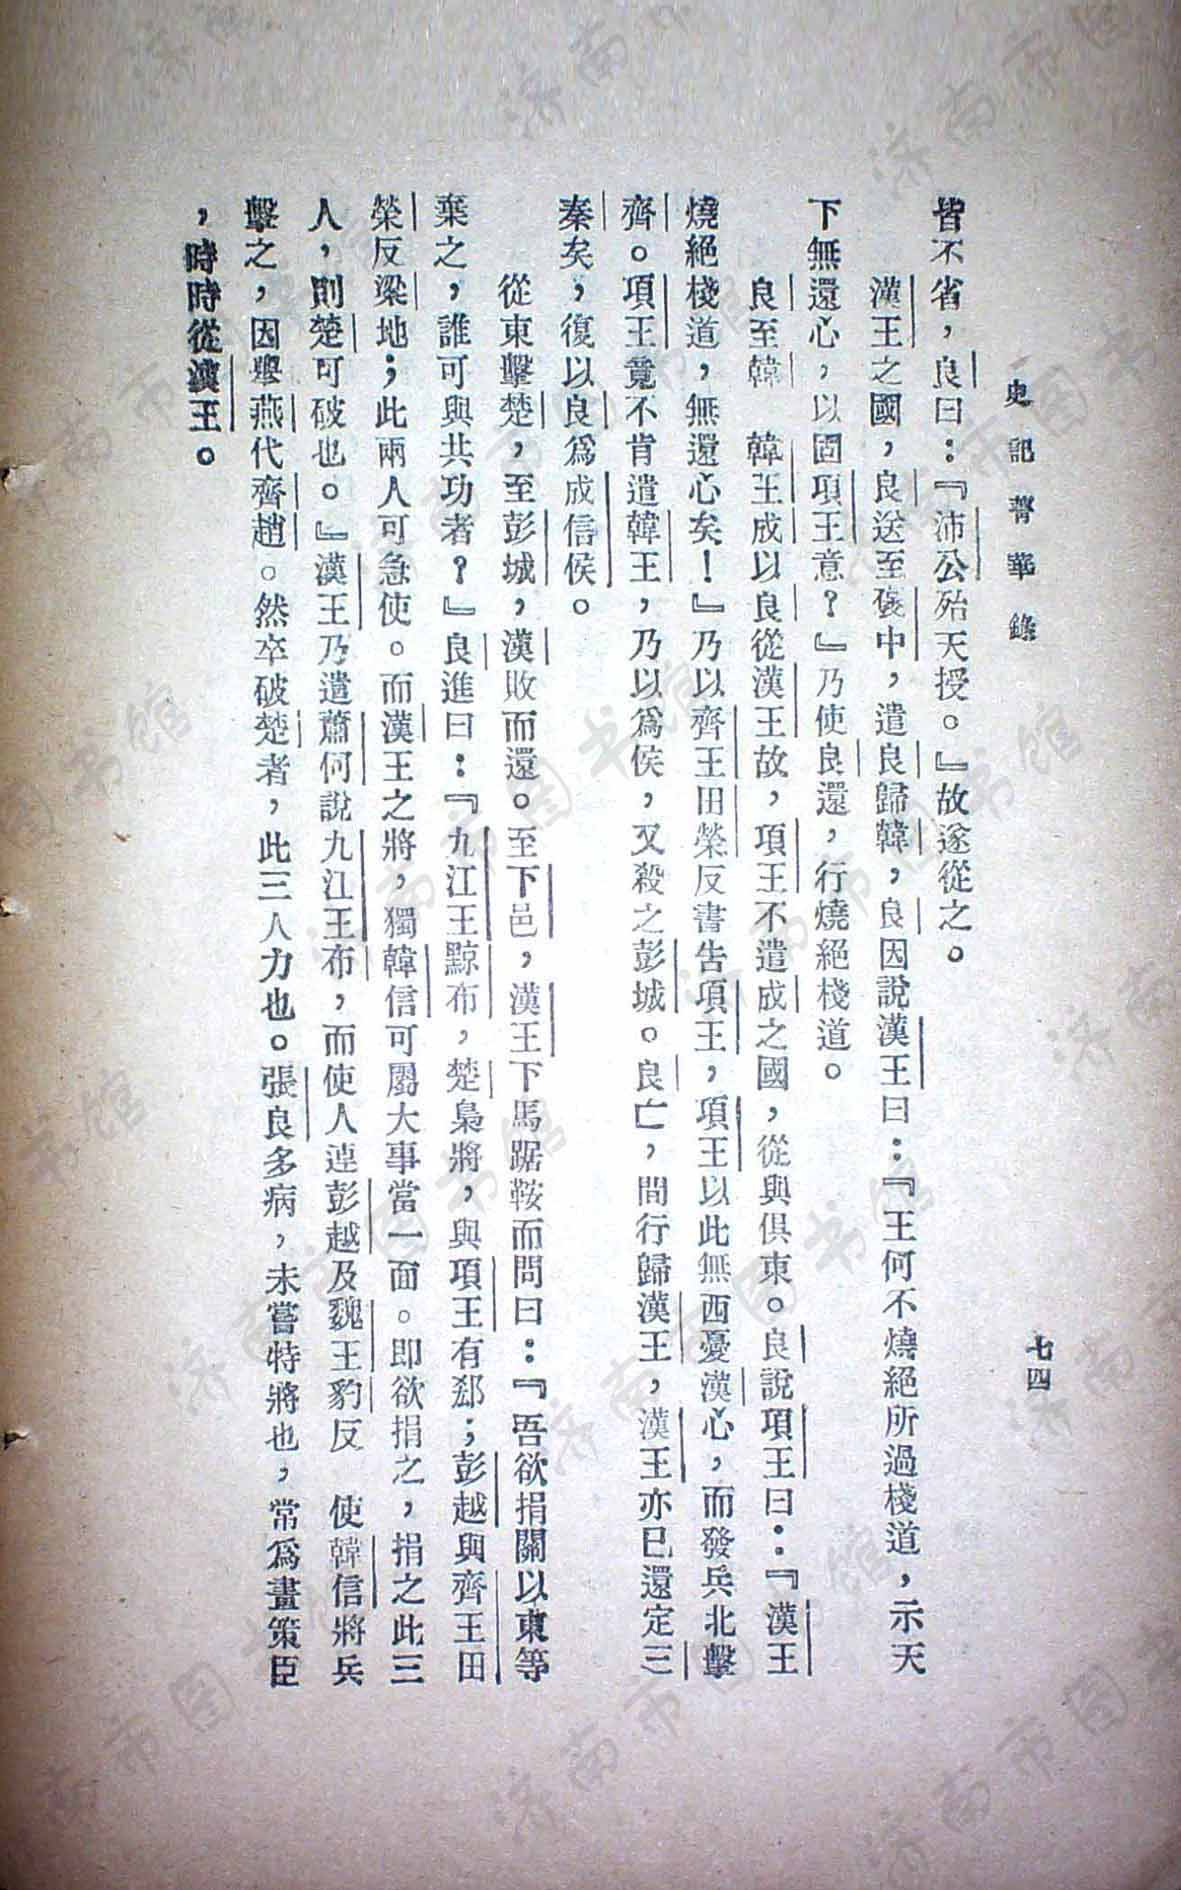 史記菁華錄
七四
皆不省，良曰：『沛公殆天授。』故遂從之。
漢王之國，良送至褒中，遣良歸韓，良因說漢王曰：『王何不燒絕所過棧道，示天
下無還心，以固項王意？』乃使良還，行燒絕棧道。
良至韓　韓王成以良從漢王故，項王不遣成之國，從與俱東。良說項王曰：『漢王
燒絕棧道，無還心矣！』乃以齊王田榮反書告項王，項王以此無西憂漢心，而發兵北擊
齊。項王竟不肯遣韓王，乃以爲侯，又殺之彭城。良亡，間行歸漢王，漢王亦已還定三
秦矣，復以良爲成信侯。
從東擊楚，至彭城，漢敗而還。至下邑，漢王下馬踞鞍而問曰：『吾欲捐關以東等
棄之，誰可與共功者？』良進曰：『九江王黥布，楚梟將，與項王有郄；彭越與齊王田
榮反梁地；此兩人可急使。而漢王之將，獨韓信可屬大事當一面。即欲捐之，捐之此三
人，則楚可破也。』漢王乃遣蕭何說九江王布，而使人連彭越及魏王豹反　使韓信將兵
擊之，因舉燕代齊趙。然卒破楚者，此三人力也。張良多病，未嘗特將也，常爲畫策臣
，時時從漢王。
济南市图书馆